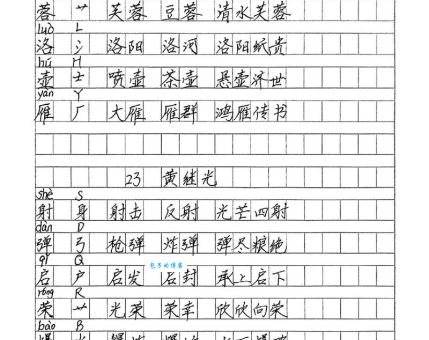 蓉 艹 芙蓉 豆蓉 清水芙蓉
luò L
洛 氵 洛阳 洛河 洛阳纸贵
hú H
壶 士 喷壶 茶壶 悬壶济世
yàn Y
雁 厂 大雁 雁群 鸿雁传书
23 黄继光
shè S
射 身 射击 反射 光芒四射
dàn D
弹 弓 枪弹 炸弹 弹尽粮绝
qǐ Q
包子的博客
启 户 启发 启封 承上启下
róng R
荣 艹 光荣 荣幸 欣欣向荣
bào B